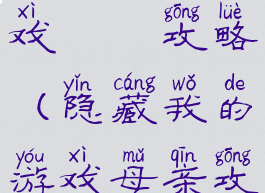 xì gōng lüè
戏 攻略
yǐn cáng wǒ de
（隐藏我的
yóu xì mǔ qīn gōng
游戏母亲攻